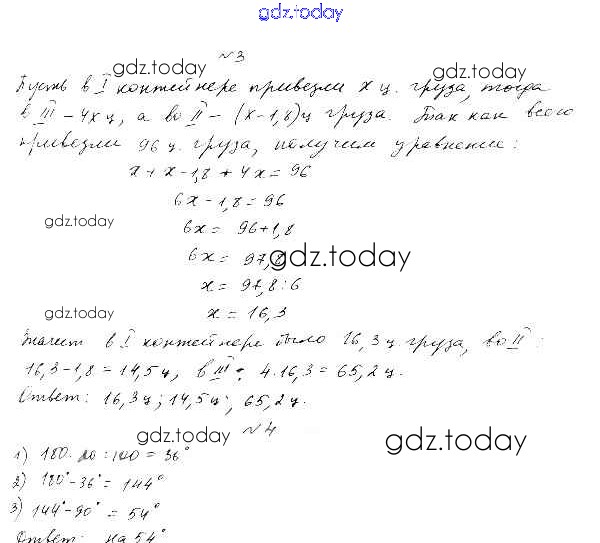 gdz.today
№3
gdz.today gdz.today
Пусть в I контейнере привезли x ц. груза, тогда
в III – 4x ц, а во II – (x-1,8) ц груза. Так как всего
привезли 96 ц. груза, получим уравнение:
x + x - 1,8 + 4x = 96
6x - 1,8 = 96
gdz.today
6x = 96+1,8
6x = 97,8
gdz.today
x = 97,8 : 6
gdz.today
x = 16,3
Значит в I контейнере было 16,3 ц. груза, во II :
16,3-1,8 = 14,5 ц, в III : 4·16,3 = 65,2 ц.
Ответ: 16,3 ц; 14,5 ц; 65,2 ц.
№4
gdz.today gdz.today
1) 180 · :100 = 36°
2) 180° - 36° = 144°
3) 144° - 90° = 54°
gdz.today
Ответ: на 54°